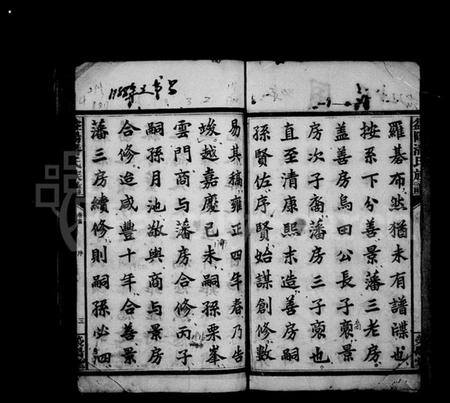 羅碁布然猶未有譜牒也
按系下分善景藩三老房
蓋善房烏田公長子褒景
房次子裔藩房三子褒也
直至清康熙末造善房嗣
孫賢佐序賢始謀創修數
易其稿雍正四年春乃告
竣越嘉慶己未嗣孫栗峯
雲門商与藩房合修丙子
嗣孫月池敖與商与景房
合修迨咸豐十年合善景
藩三房續修則嗣孫必泗
三